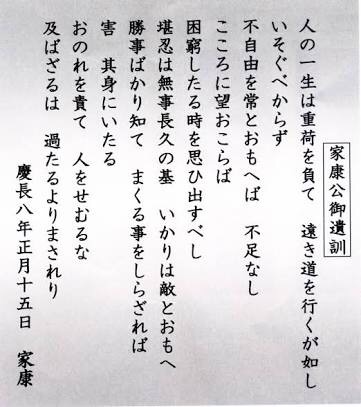 家康公御遺訓
人の一生は重荷を負て　遠き道を行くが如し
いそぐべからず
不自由を常とおもへば　不足なし
こころに望おこらば
困窮したる時を思ひ出すべし
堪忍は無事長久の基　いかりは敵とおもへ
勝事ばかり知て　まくる事をしらざれば
害　其身にいたる
おのれを責て　人をせむるな
及ばざるは　過たるよりまされり
慶長八年正月十五日　家康